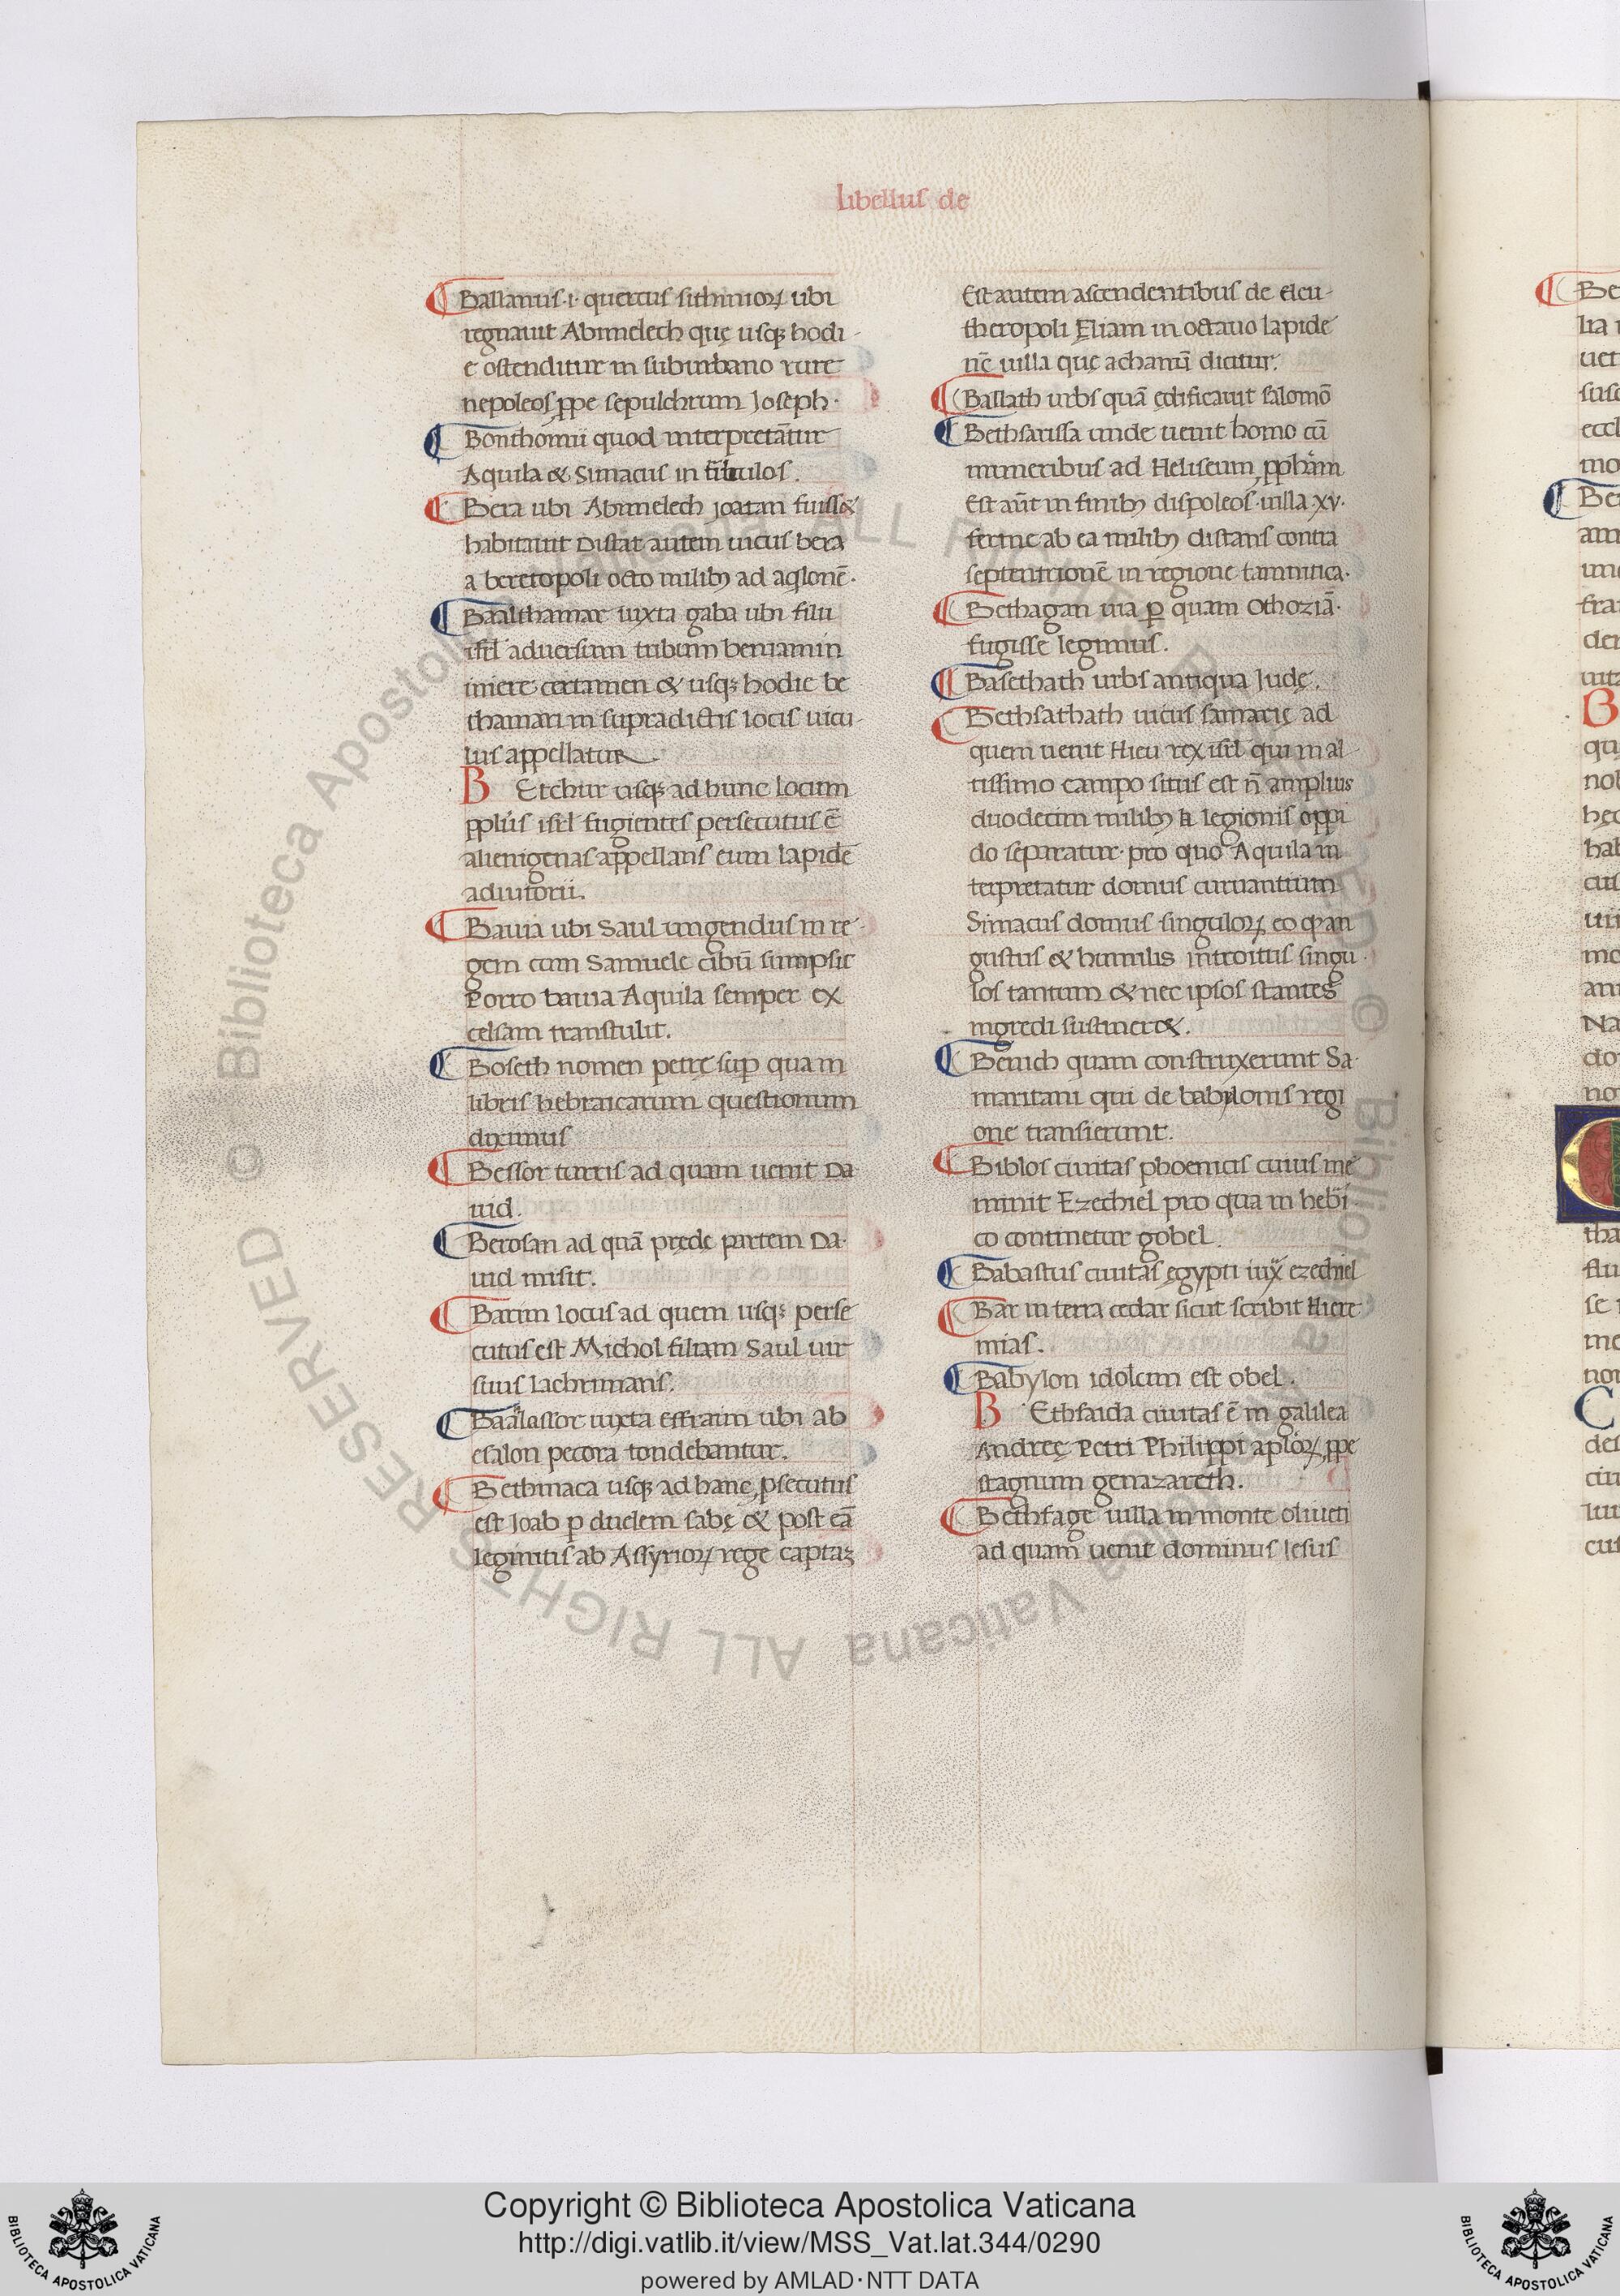 libellus de
Ballanus ·i· quercus sithimoꝝ ubi
regnauit Abimelech quę usqꝫ hodi-
e ostenditur in suburbano rure
nepoleos ꝓpe sepulchrum Joseph·
Bonthomii quod interpretātur
Aquila & Simacus in
Bera ubi Abimelech joatan fuiss&
habitauit Distat autem uicus bera
a beretopoli octo milibꝫ ad aqlonē·
Baalthamar iuxta gaba ubi filii
isrl aduersum tribum beniamin
iniere certamen & usqꝫ hodie be
thamari in supradictis locis uicu-
lus appellatur
B Etchur usqꝫ ad hunc locum
pplūs isrl fugientes persecutus ē
alienigenas appellans eum lapidē
adiutorii.
Bauia ubi Saul ungendus in re-
gem cum Samuele cibū sumpsit
Porro bauia Aquila semper ex
celsam transtulit.
Boseth nomen petrę sup quam
libris hebraicarum questionum
diximus
Bessor turris ad quam uenit Da
uid.
Berosan ad quā prędę partem Da-
uid misit.
Barim locus ad quem usqꝫ perse
cutus est Michol filiam Saul uir
suus lachrimans.
Baalassor iuxta effraim ubi ab
esalon pecora tondebantur.
Bethmaca usqꝫ ad hanc ꝑsecutus
est Joab p duclem sabę & post eā
legimus ab Assyrioꝝ rege captaꝫ
Est autem ascendentibus de eleu-
theropoli Eliam in octauo lapide
nē uilla quę achamū dicitur.
Ballath urbs quā ędificauit salomō
Bethsarissa unde uenit homo cū
muneribus ad Heliseum ꝓphām
Est aūt in finibꝫ dispoleos uilla ·xv·
ferme ab ea milibꝫ distans contra
septentrionē in regione tamnitica·
Bethagan uia ꝑ quam Othoziā·
fugisse legimus.
Basethath urbs antiqua Judę.
Bethsathath uicus samarię ad
quem uenit Hieu rex isrl qui in al-
tissimo campo situs est n̄ amplius
duodecim milibꝫ a legionis oppi
do separatur· pro quo Aquila in
terpretatur domus curuantium
Simacus domus singuloꝝ eo ꝙ an
gustus & humilis introitus singu-
los tantum & nec ipsos stantes
ingredi sustiner&.
Benich quam construxerunt Sa-
maritani qui de babylonis regi
one transierunt.
Biblos ciuitas phoenicis cuius me
minit Ezechiel pro qua in hebi
co continetur gobel.
Babastus ciuitas ęgypti iux̄ ezechiel
Bar in terra cedar sicut scribit Hiere
mias.
Babylon idolum est obel.
B Ethsaida ciuitas ē in galilea
Andreę Petri Philippi aploꝝ ꝓpe
stagnum genazareth.
Bethfage uilla in monte oliueti
ad quam uenit dominus Iesus
Copyright © Biblioteca Apostolica Vaticana
http://digi.vatlib.it/view/MSS_Vat.lat.344/0290
powered by AMLAD·NTT DATA